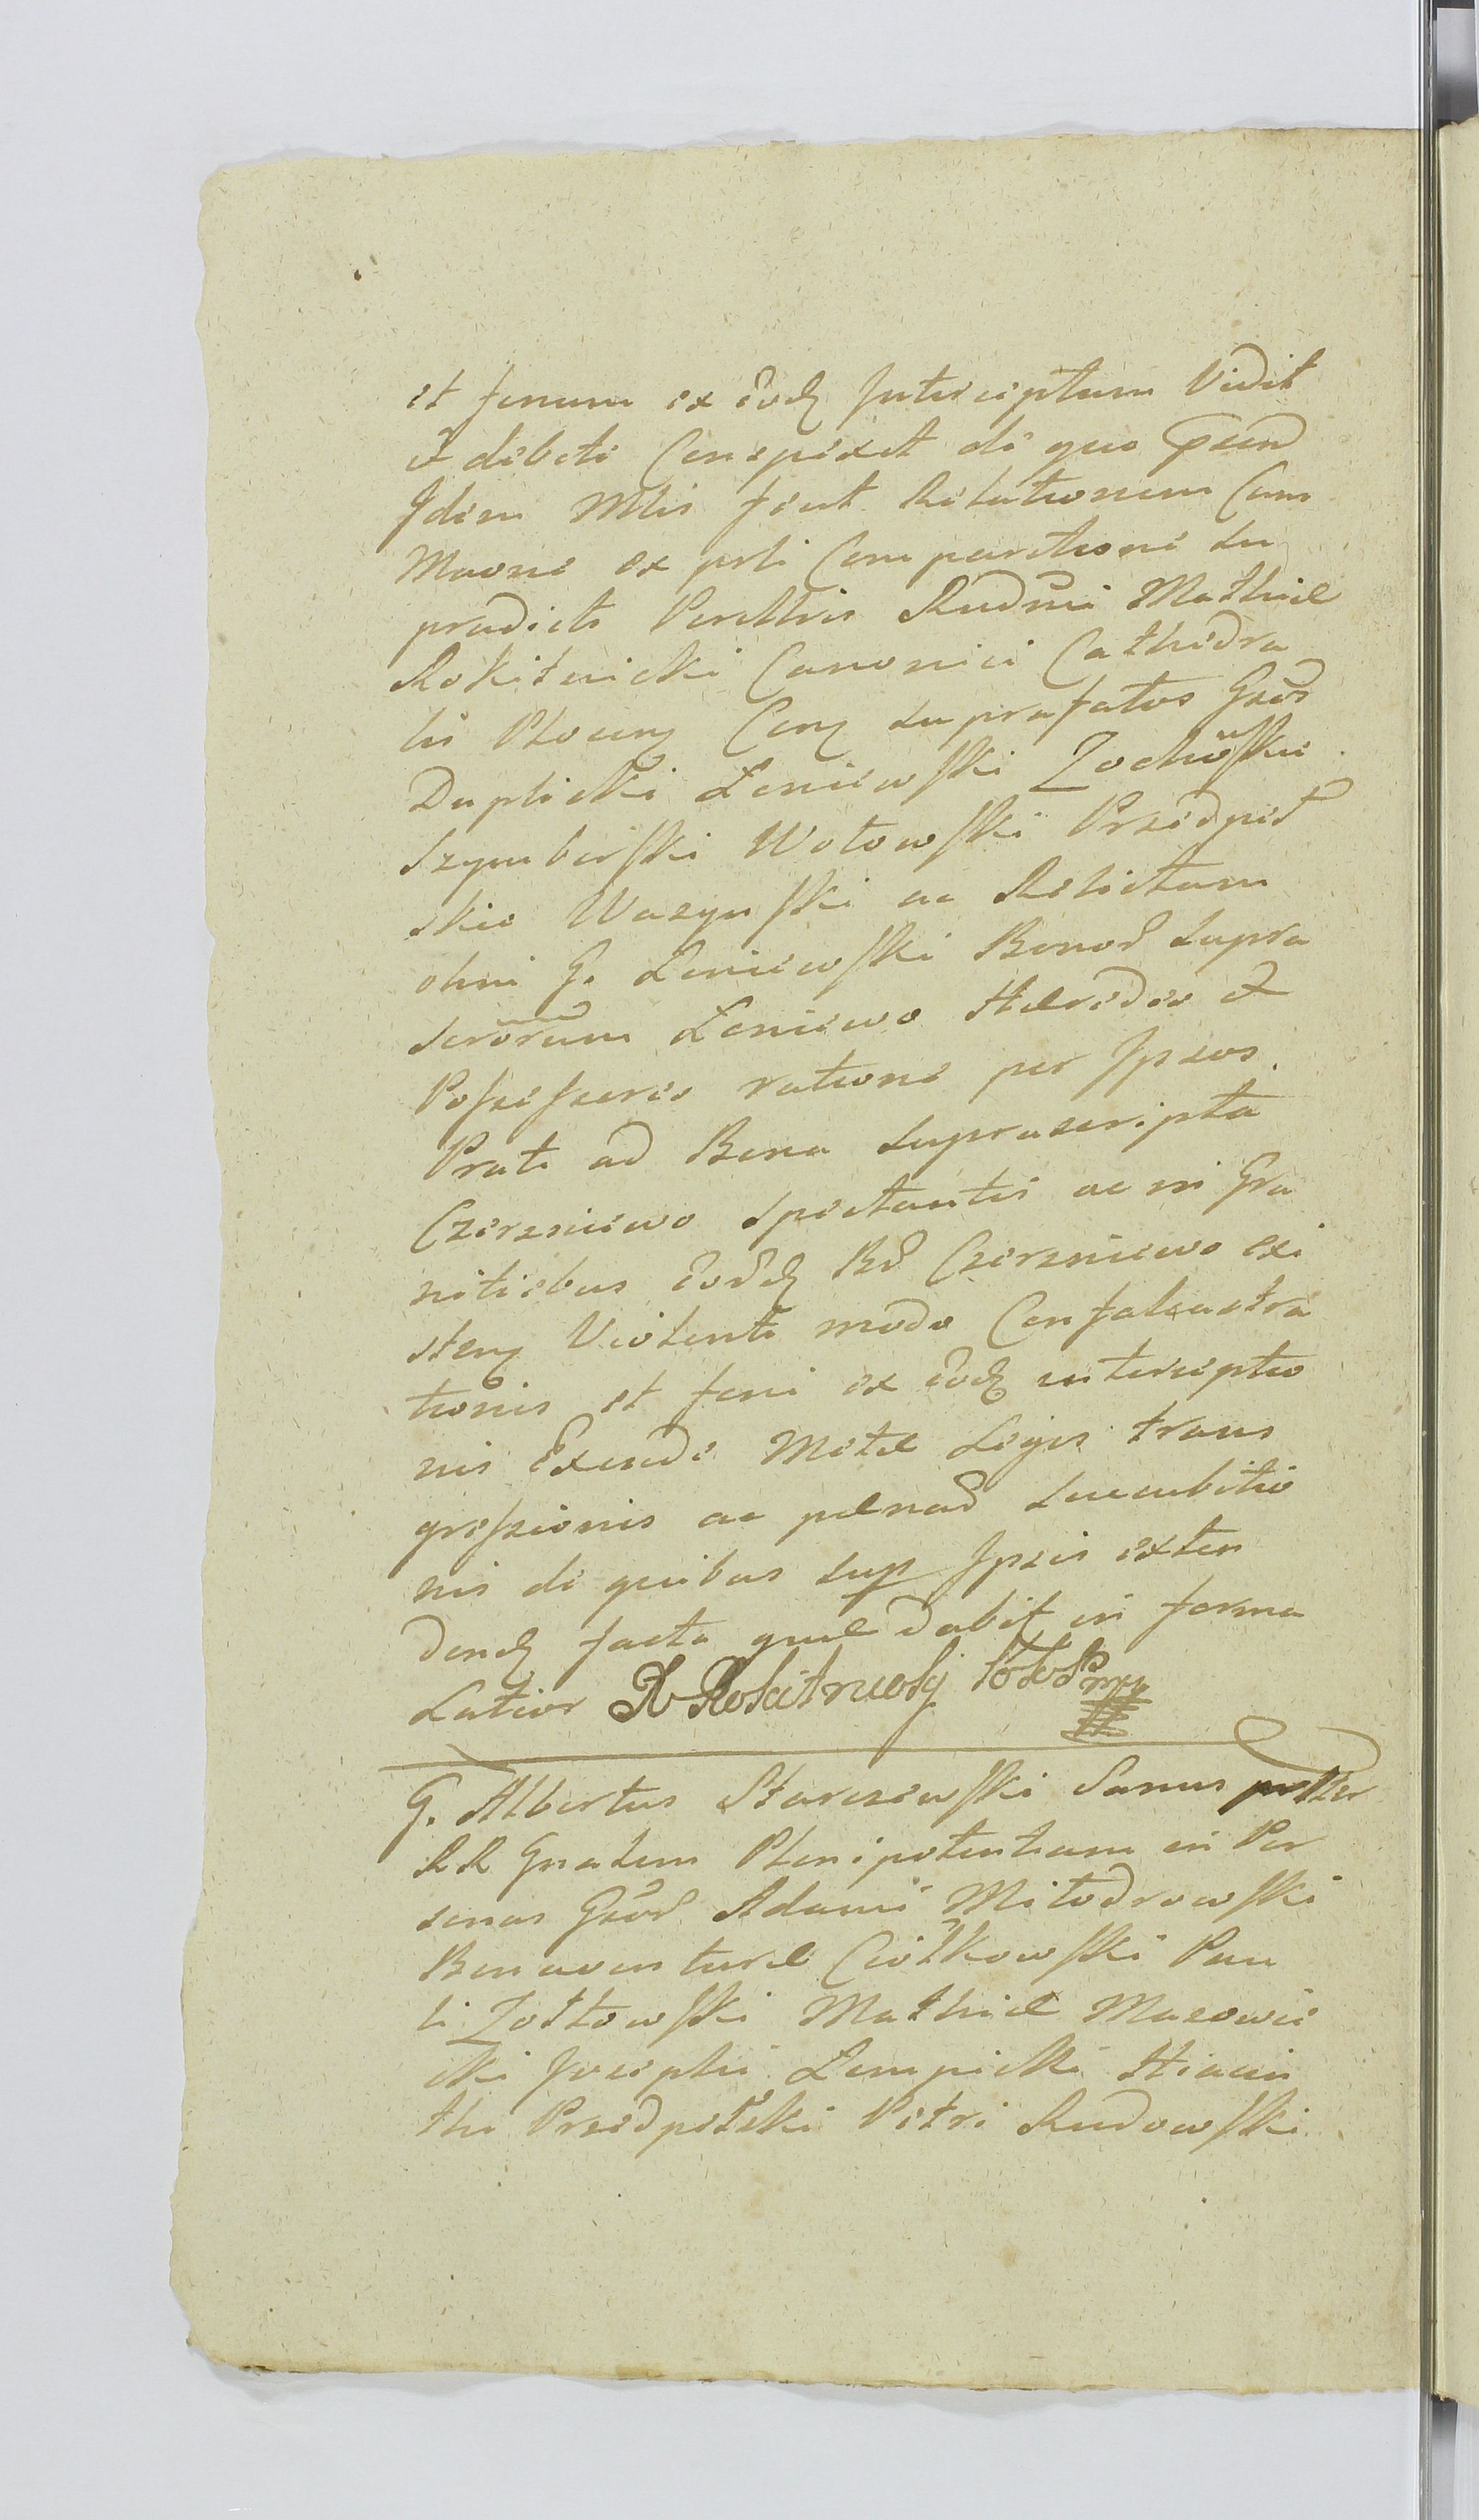 et fenum ex eod Interceptum Vidit
et debite Conspexit de quo
Idem Mlis fecit Relationem Cum
Maone ex prti Comparitione Su
pradicti Perillris Rudmi Mathiæ
Rokitnicki Canonici Cathedra
lis Plocens Cons supra fatos Gsos
Duplicki Leniewski Zochowskie
Szymborski Wołowski Przedpeł
skie Wazynski ac Relictam
olim G. Leniewski Bonor supra
scrorum Leniewo Hæredes et
Possessores ratione per Ipsos
Prati ad Bona Suprascripta
Czerzniewo spectantis ac in Gra
nitiebus eord Br Czerzniewo exi
sten Violento modo Confalcastra
tionis et feni ex eod interceptio
nis Exinde Metæ Legis trans
gressionis ac pænar Succubitio
nis de quibus sup Ipsis exten
dend facta quæ dabit in forma
Latior R Rokitnicki mpp
G. Albertus Starczewski Sanus
R R Gnalem Plenipotentiam in Per
sonas Gsor Adami Miłodrowski
Bonaventuræ Ciołkowski Pau
li Zołtowski Mathiæ Mazowie
cki Josephi Lempicki Hiacin
thi Przedpełski Petri Rudowski